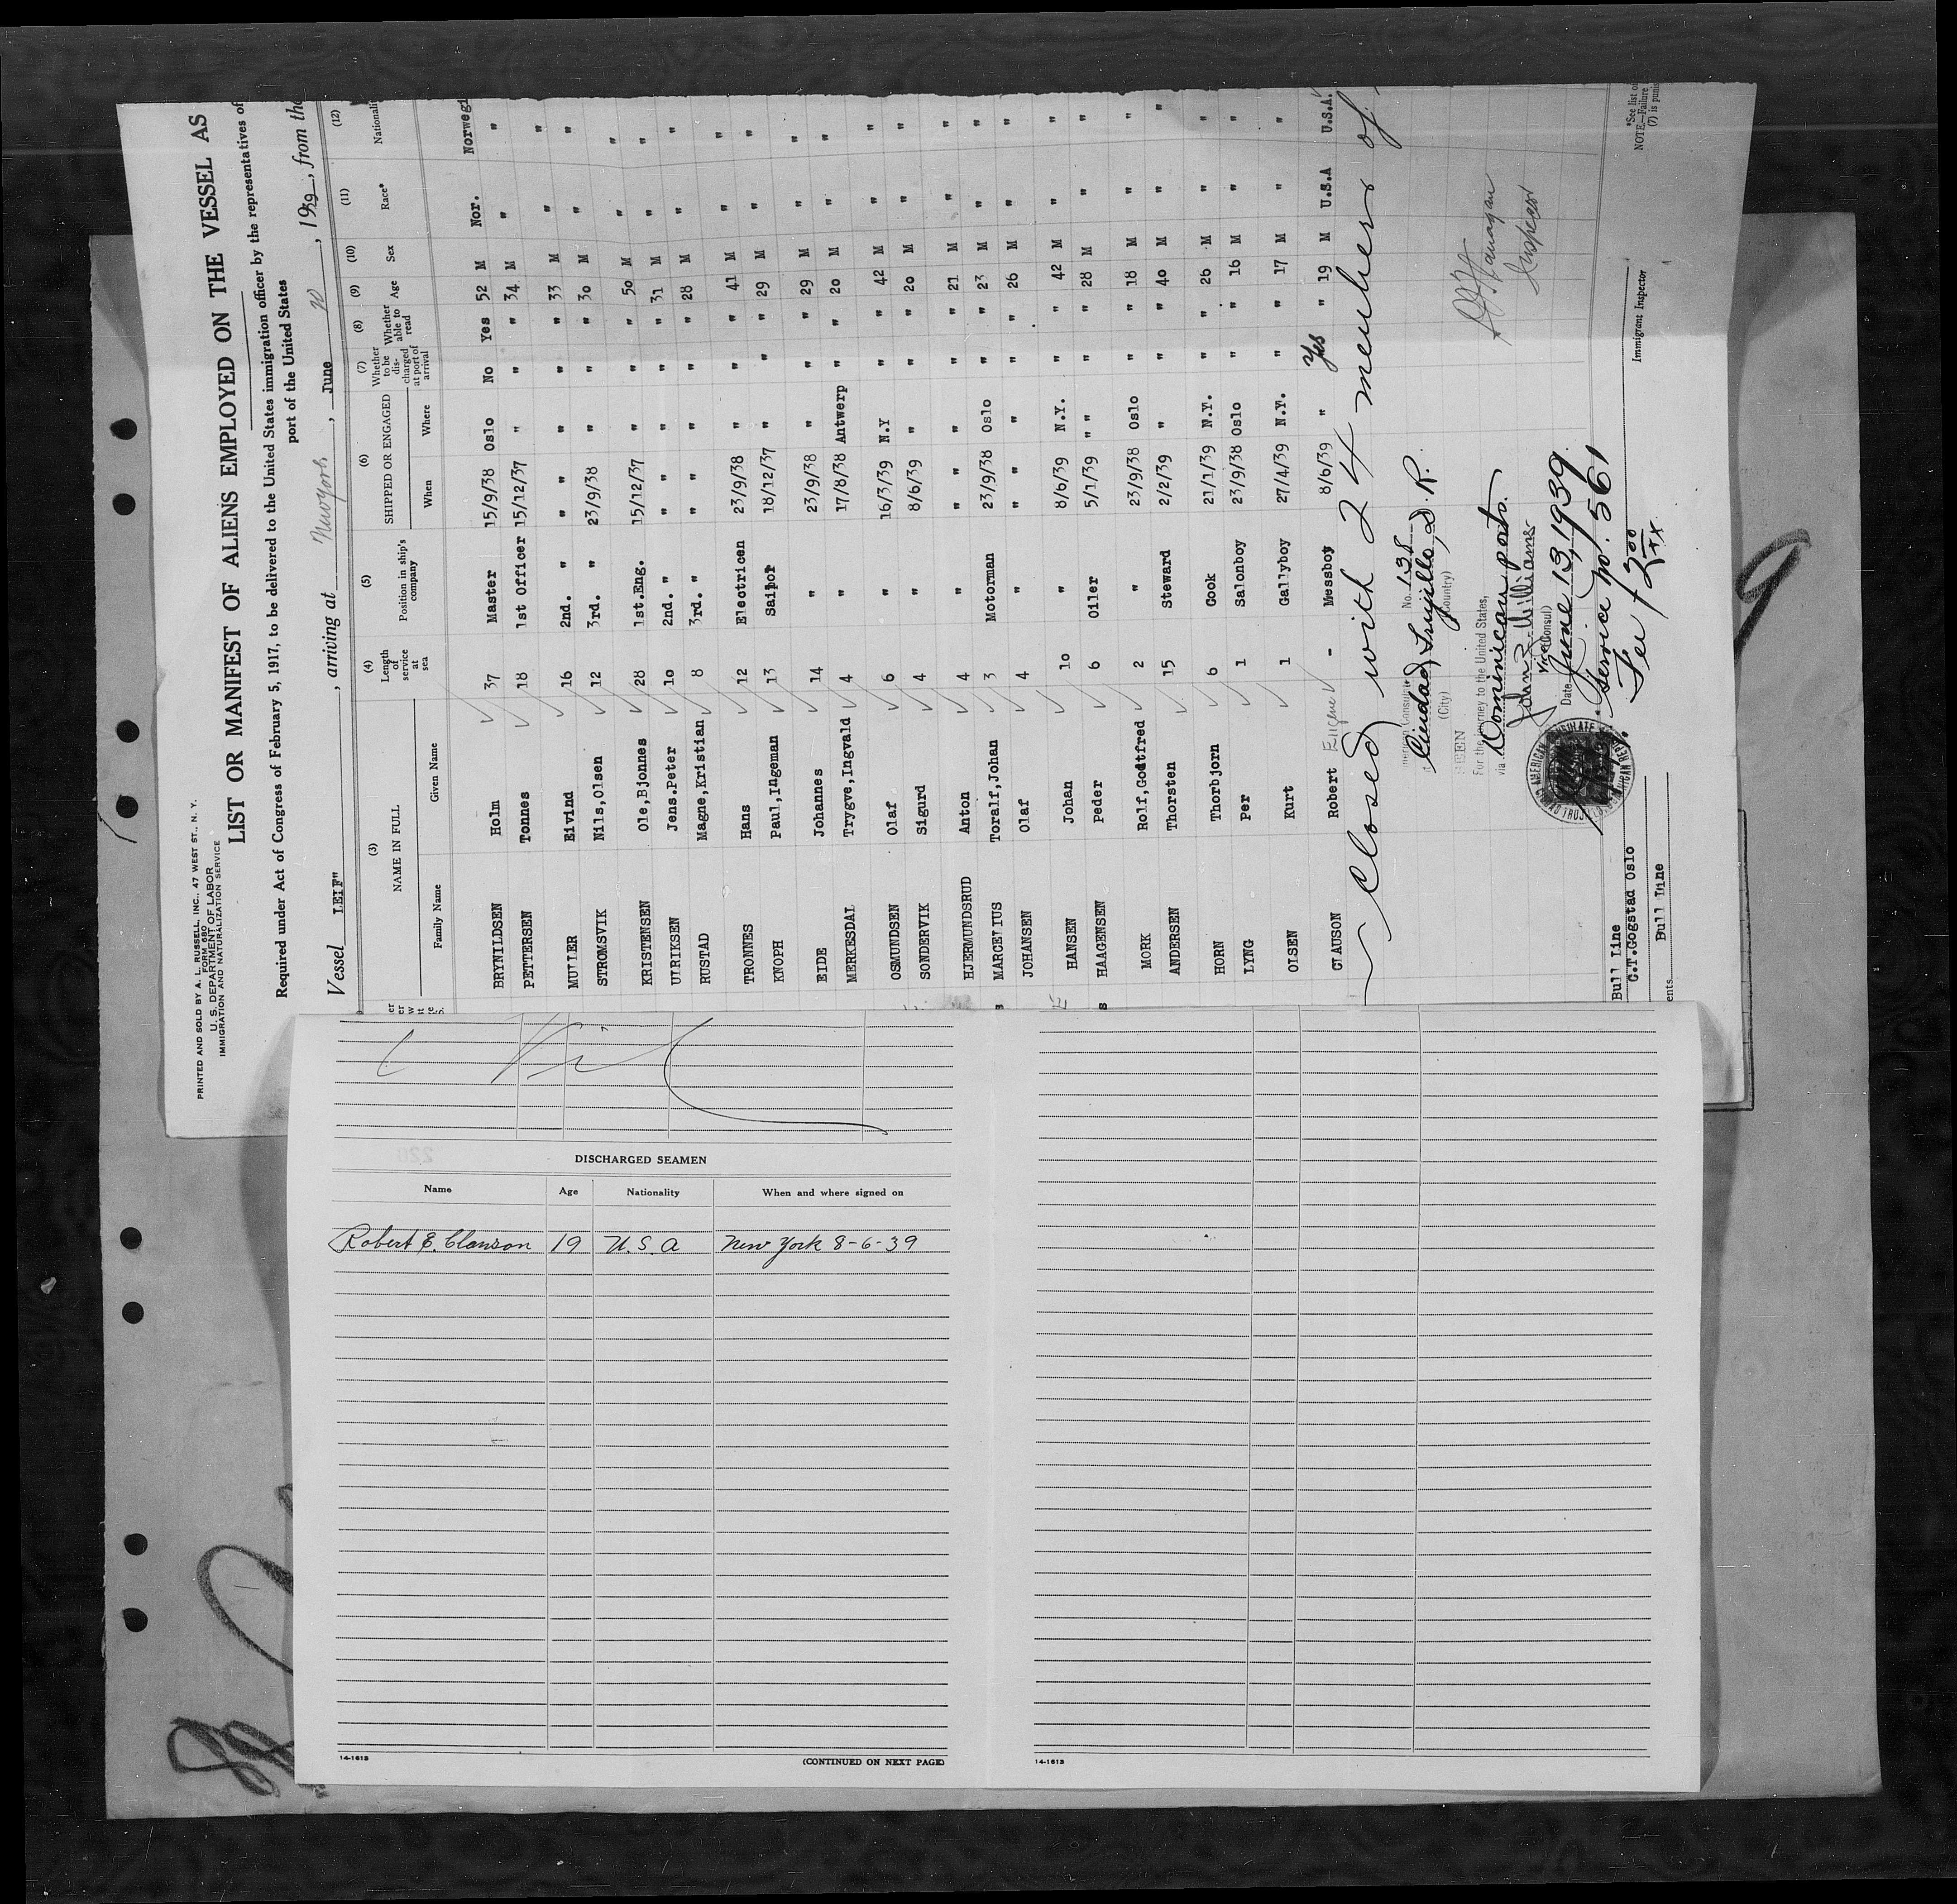 PRINTED AND SOLD BY A. L. RUSSELL, INC., 47 WEST ST., N. Y.
FORM 680
U. S. DEPARTMENT OF LABOR
IMMIGRATION AND NATURALIZATION SERVICE
LIST OR MANIFEST OF ALIENS EMPLOYED ON THE VESSEL AS
Required under Act of Congress of February 5, 1917, to be delivered to the United States immigration officer by the representatives of
port of the United States
Vessel LEIF" , arriving at New York , June 20 , 1939, from the
(3) (4) (5) (6) (7) (8) (9) (10) (11) (12)
NAME IN FULL Length of service at sea Position in ship's company SHIPPED OR ENGAGED Whether to be discharged at port of arrival Whether able to read Age Sex Race* Nationali
Family Name Given Name When Where
BRYNILDSEN Holm 37 Master 15/9/38 Oslo No Yes 52 M Nor. Norwegi
PETTERSEN Tonnes 18 1st Officer 15/12/37 " " " 34 M " "
MULLER Eivind 16 2nd. " " " " " 33 M " "
STROMSVIK Nils,Olsen 12 3rd. " 23/9/38 " " " 30 M " "
KRISTENSEN Ole,Bjonnes 28 1st.Eng. 15/12/37 " " " 50 M " "
ULRIKSEN Jens.Peter 10 2nd. " " " " " 31 M " "
RUSTAD Magne,Kristian 8 3rd. " " " " " 28 M " "
TRONNES Hans 12 Electricen 23/9/38 " " " 41 M " "
KNOPH Paul,Ingeman 13 Sailor 18/12/37 " " " 29 M " "
EIDE Johannes 14 " 23/9/38 " " " 29 M " "
MERKESDAL Trygve,Ingvald 4 " 17/8/38 Antwerp " " 20 M " "
OSMUNDSEN Olaf 6 " 16/3/39 N.Y " " 42 M " "
SONDERVIK Sigurd 4 " 8/6/39 " " " 20 M " "
HJERMUNDSRUD Anton 4 " " " " " 21 M " "
MARCELIUS Toralf,Johan 3 Motorman 23/9/38 Oslo " " 23 M " "
JOHANSEN Olaf 4 " " " " " 26 M " "
HANSEN Johan 10 " 8/6/39 N.Y. " " 42 M " "
HAAGENSEN Peder 6 Oiler 5/1/39 " " " " 28 M " "
MORK Rolf,Godtfred 2 " 23/9/38 Oslo " " 18 M " "
ANDERSEN Thorsten 15 Steward 2/2/39 " " " 40 M " "
HORN Thorbjorn 6 Cook 21/1/39 N.Y. " " 26 M " "
LYNG Per 1 Salonboy 23/9/38 Oslo " " 16 M " "
OLSEN Kurt 1 Gallyboy 27/4/39 N.Y. " " 17 M " "
CLAUSON Robert Eugene - Messboy 8/6/39 " Yes " 19 M U.S.A U.S.A.
Closed with 24 members of
No. 138
Ciudad Trujillo, D. R.
(City) (Country)
SEEN
For the journey to the United States,
via Dominican ports.
John Z. Williams
Vice Consul)
Date June 13, 1939
Service No. 561
Fee $2.00
Inspector
Immigrant Inspector
Bull Line
C.T.Gogstad Oslo
Bull Line
*See list o
NOTE.—Failure
(7) is puni
DISCHARGED SEAMEN
Name Age Nationality When and where signed on
Robert E. Clauson 19 U.S.A New York 8-6-39
14-1613 (CONTINUED ON NEXT PAGE)
14-1613